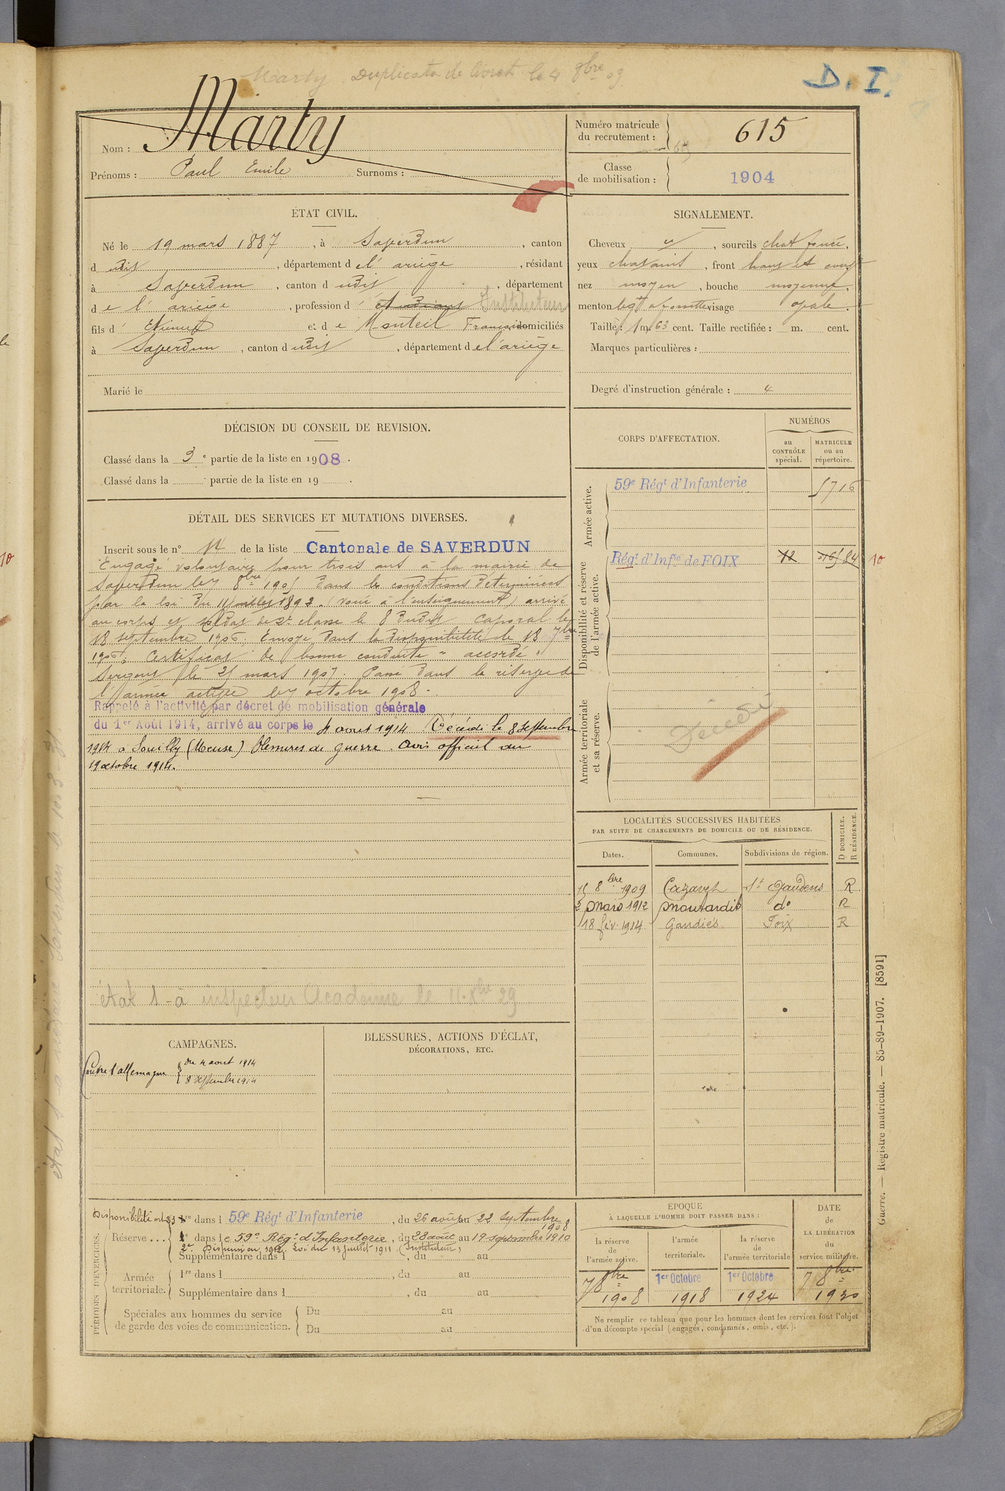 Marty Duplicata de livret le 4 8bre 09
D. I.
Nom : Marty
Prénoms : Paul Emile Surnoms :
Numéro matricule du recrutement : 615
Classe de mobilisation : 1904
ÉTAT CIVIL.
Né le 19 mars 1887, à Saverdun, canton
dudit, département de l'ariège, résidant
à Saverdun, canton dudit, département
de l'ariège, profession d'étudiant Instituteur
fils d'Etienne et de Monteil Françoise domiciliés
à Saverdun, canton dudit, département de l'ariège
Marié le
SIGNALEMENT.
Cheveux et, sourcils chat foncé,
yeux chatains, front haut et
nez moyen, bouche moyenne,
menton visage ovale.
Taille : 1 m 63 cent. Taille rectifiée : m. cent.
Marques particulières :
Degré d'instruction générale : 4
DÉCISION DU CONSEIL DE REVISION.
Classé dans la 3e partie de la liste en 1908.
Classé dans la partie de la liste en 19 .
DÉTAIL DES SERVICES ET MUTATIONS DIVERSES.
Inscrit sous le n° de la liste Cantonale de SAVERDUN
Engagé volontaire pour trois ans à la mairie de
Saverdun le 7 8bre 1905 dans les conditions déterminées
par la loi du 11 juillet 1892. (voué à l'enseignement) arrivé
au corps et soldat de 2e classe le 8 dudit Caporal le
18 septembre 1906 Envoyé dans la disponibilité le 18 7bre
1906. Certificat de bonne conduite "accordé".
Sergent le 25 mars 1907. Passé dans la réserve de
l'armée active le 7 octobre 1908.
Rappelé à l'activité par décret de mobilisation générale
du 1er Août 1914, arrivé au corps le 4 aout 1914 Décédé le 8 Septembre
1914 à Souilly (Meuse) blessures de guerre. Avis officiel du
19 octobre 1914.
état 1 a inspecteur Académie le 11 8bre 29
CORPS D'AFFECTATION.
NUMÉROS
au CONTRÔLE spécial.
MATRICULE ou au répertoire.
Armée active.
59e Régt d'Infanterie 5716
Disponibilité et réserve de l'armée active.
Régt d'Infie de FOIX 12 84
Armée territoriale et sa réserve.
Décédé
LOCALITÉS SUCCESSIVES HABITÉES
PAR SUITE DE CHANGEMENTS DE DOMICILE OU DE RÉSIDENCE.
Dates. Communes. Subdivisions de région. D DOMICILE. R RÉSIDENCE.
15 8bre 1909 St Gaudens R
2 Mars 1912 do R
18 fév. 1914 Gaudiès Foix R
CAMPAGNES.
Contre l'allemagne du 4 aout 1914
8 septembre 1914
BLESSURES, ACTIONS D'ÉCLAT,
DÉCORATIONS, ETC.
PÉRIODES D'EXERCICES.
Disponibilité 1re dans l 59e Régt d'Infanterie, du 26 août au 22 septembre 1908
Réserve... 1re dans le 59e Régt d'Infanterie, du 28 août au 19 septembre 1910
2e Dispensé en 1912. Loi du 13 juillet 1911 (Instituteur)
Supplémentaire dans l , du au
Armée territoriale. 1re dans l , du au
Supplémentaire dans l , du au
Spéciales aux hommes du service de garde des voies de communication. Du au
Du au
ÉPOQUE
À LAQUELLE L'HOMME DOIT PASSER DANS :
la réserve de l'armée active.
l'armée territoriale.
la réserve de l'armée territoriale
DATE de LA LIBÉRATION du service militaire.
7 8bre 1908
1er Octobre 1918
1er Octobre 1924
7 8bre 1930
Ne remplir ce tableau que pour les hommes dont les services font l'objet
d'un décompte spécial (engagés, condamnés, omis, etc.).
Guerre. — Registre matricule. — 85-89-1907. [8591]